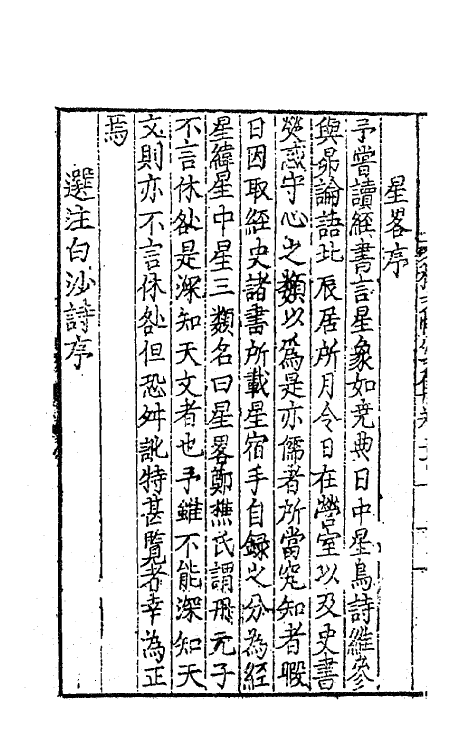 星畧序
予嘗讀經書言星象如堯典日中星鳥詩維參
與昴論語北辰居所月令日在營室以及史書
熒惑守心之類以為是亦儒者所當究知者暇
日因取經史諸書所載星宿手自録之分為經
星緯星中星三類名曰星畧鄭樵氏謂丹元子
不言休咎是深知天文者也予雖不能深知天
文則亦不言休咎但恐舛訛特甚覽者幸為正
焉
選注白沙詩序